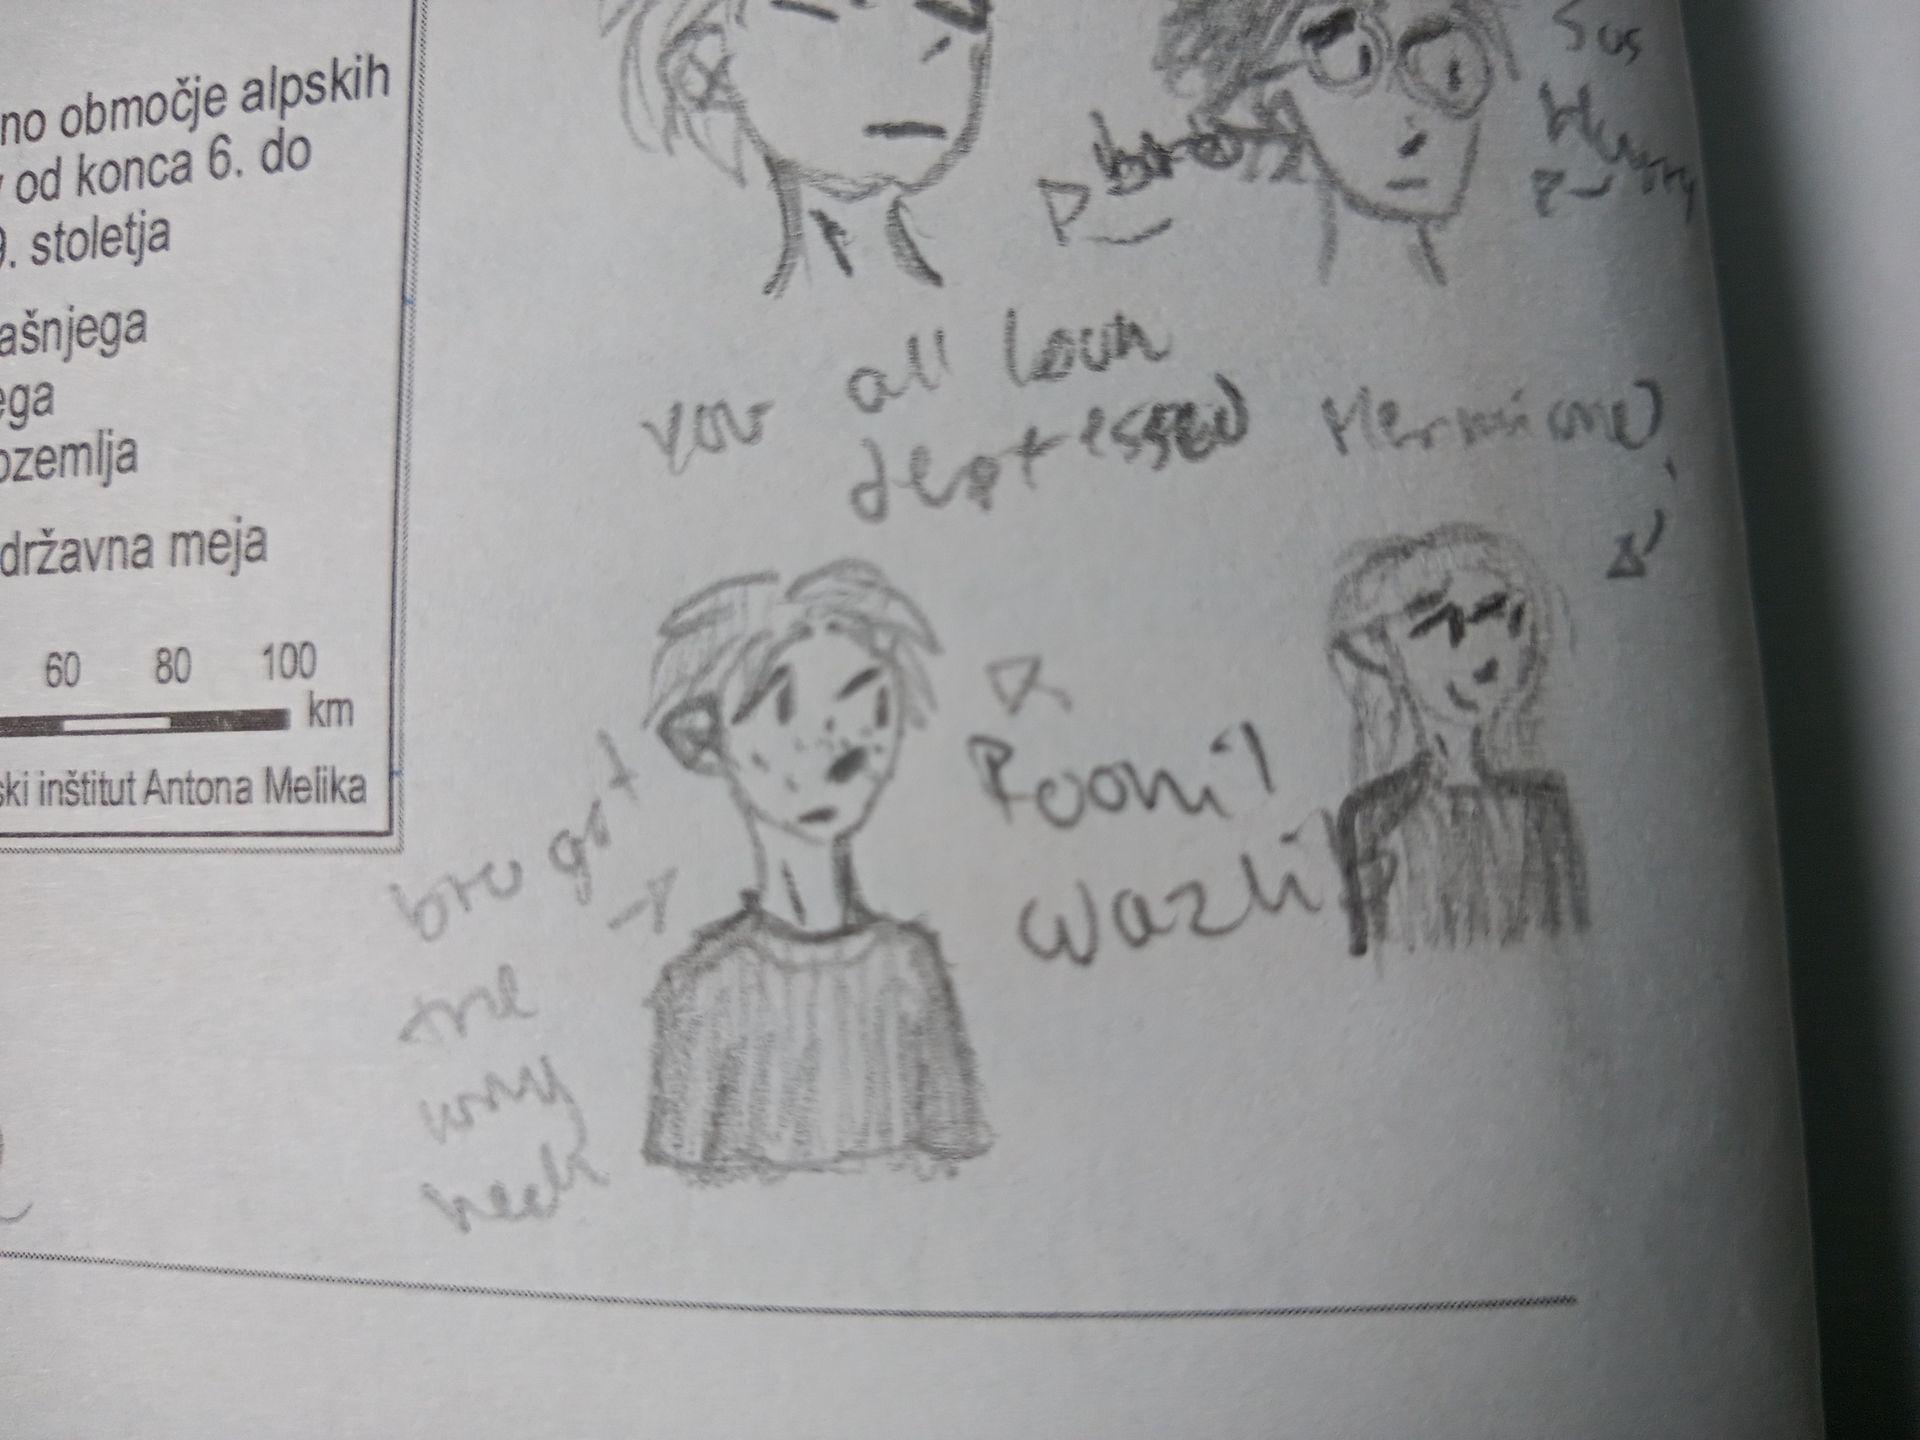 no območje alpskih
od konca 6. do
9. stoletja
ašnjega
ega
ozemlja
državna meja
60 80 100
km
ski inštitut Antona Melika
Sus
you all look
depressed
Hermione
Roonil
Wazlib
bro got
the
long
neck